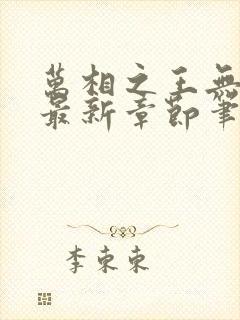 萬相之王無
最新章節筆
李東東